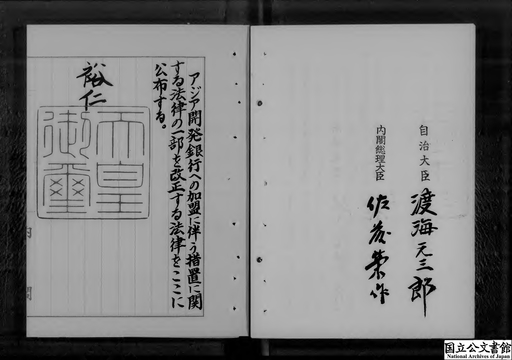 自治大臣
渡海元三郎
内閣総理大臣
佐藤榮作
アジア開発銀行への加盟に伴う措置に関
する法律の一部を改正する法律をここに
公布する。
裕仁
天皇
御璽
内
閣
国立公文書館
National Archives of Japan